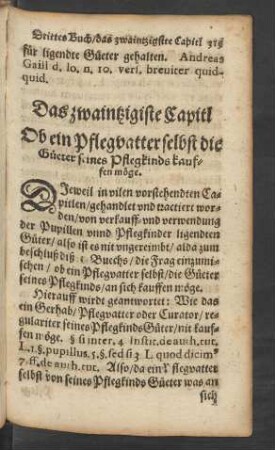 Drittes Buch/das zwaintzigste Capitl 318
für ligendte Güeter gehalten. Andreas
Gaill d. lo. n. 10. veri. breuiter quid-
quid.
Das zwaintzigiste Capitl
Ob ein Pflegvatter selbst die
Güeter seines Pflegkinds kauf-
fen möge.
DJeweil in vilen vorstehendten Ca-
pitlen/gehandlet vnd tractiert wor-
den/von verkauff vnd verwendung
der Pupillen vnnd Pflegkinder ligendten
Güter/also ist es nit vngereimbt/alda zum
beschluß diß Buechs/die Frag einzumi-
schen/ob ein Pflegvatter selbst/die Güeter
seines Pflegkinds/an sich kauffen möge.
Hierauff wirdt geantwortet: Wie das
ein Gerhab/Pflegvatter oder Curator/re-
gulariter seines Pflegkinds Güter/nit kauf-
fen möge. § si inter. 4 Instit. de auth. tut.
L. 1. §. pupillus. 5. §. sed si 3 L quod dicim⁹
7. ff. de auth. tut. Also/da ein Pflegvatter
selbst von seines Pflegkinds Güeter was an
sich